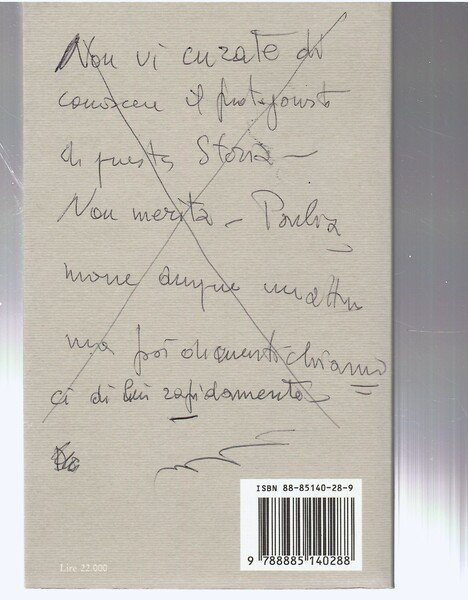 Non vi curate di
conoscere il protagonista
di questa Storia —
Non merita —
ma poi dimentichiamo
ci di lui rapidamente
ISBN 88-85140-28-9
9 788885 140288
Lire 22.000